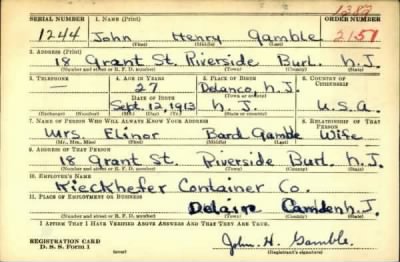 1387
SERIAL NUMBER 1. NAME (Print) ORDER NUMBER
1244 John Henry Gamble 2151
(First) (Middle) (Last)
2. ADDRESS (Print)
18 Grant St. Riverside Burl. N.J.
(Number and street or R. F. D. number) (Town) (County) (State)
3. TELEPHONE 4. AGE IN YEARS 5. PLACE OF BIRTH 6. COUNTRY OF CITIZENSHIP
— 27 Delanco, N.J.
DATE OF BIRTH (Town or county)
Sept. 12, 1913 N. J. U.S.A.
(Mo.) (Day) (Yr.) (State or country)
7. NAME OF PERSON WHO WILL ALWAYS KNOW YOUR ADDRESS 8. RELATIONSHIP OF THAT PERSON
Mrs. Elinor Bard Gamble Wife
(Mr., Mrs., Miss) (First) (Middle) (Last)
9. ADDRESS OF THAT PERSON
18 Grant St. Riverside Burl. N.J.
(Number and street or R. F. D. number) (Town) (County) (State)
10. EMPLOYER'S NAME
Kieckhefer Container Co.
11. PLACE OF EMPLOYMENT OR BUSINESS
Delair Camden N.J.
(Number and street or R. F. D. number) (Town) (County) (State)
I AFFIRM THAT I HAVE VERIFIED ABOVE ANSWERS AND THAT THEY ARE TRUE.
REGISTRATION CARD
D. S. S. Form 1 (over) John H. Gamble.
(Registrant's signature)